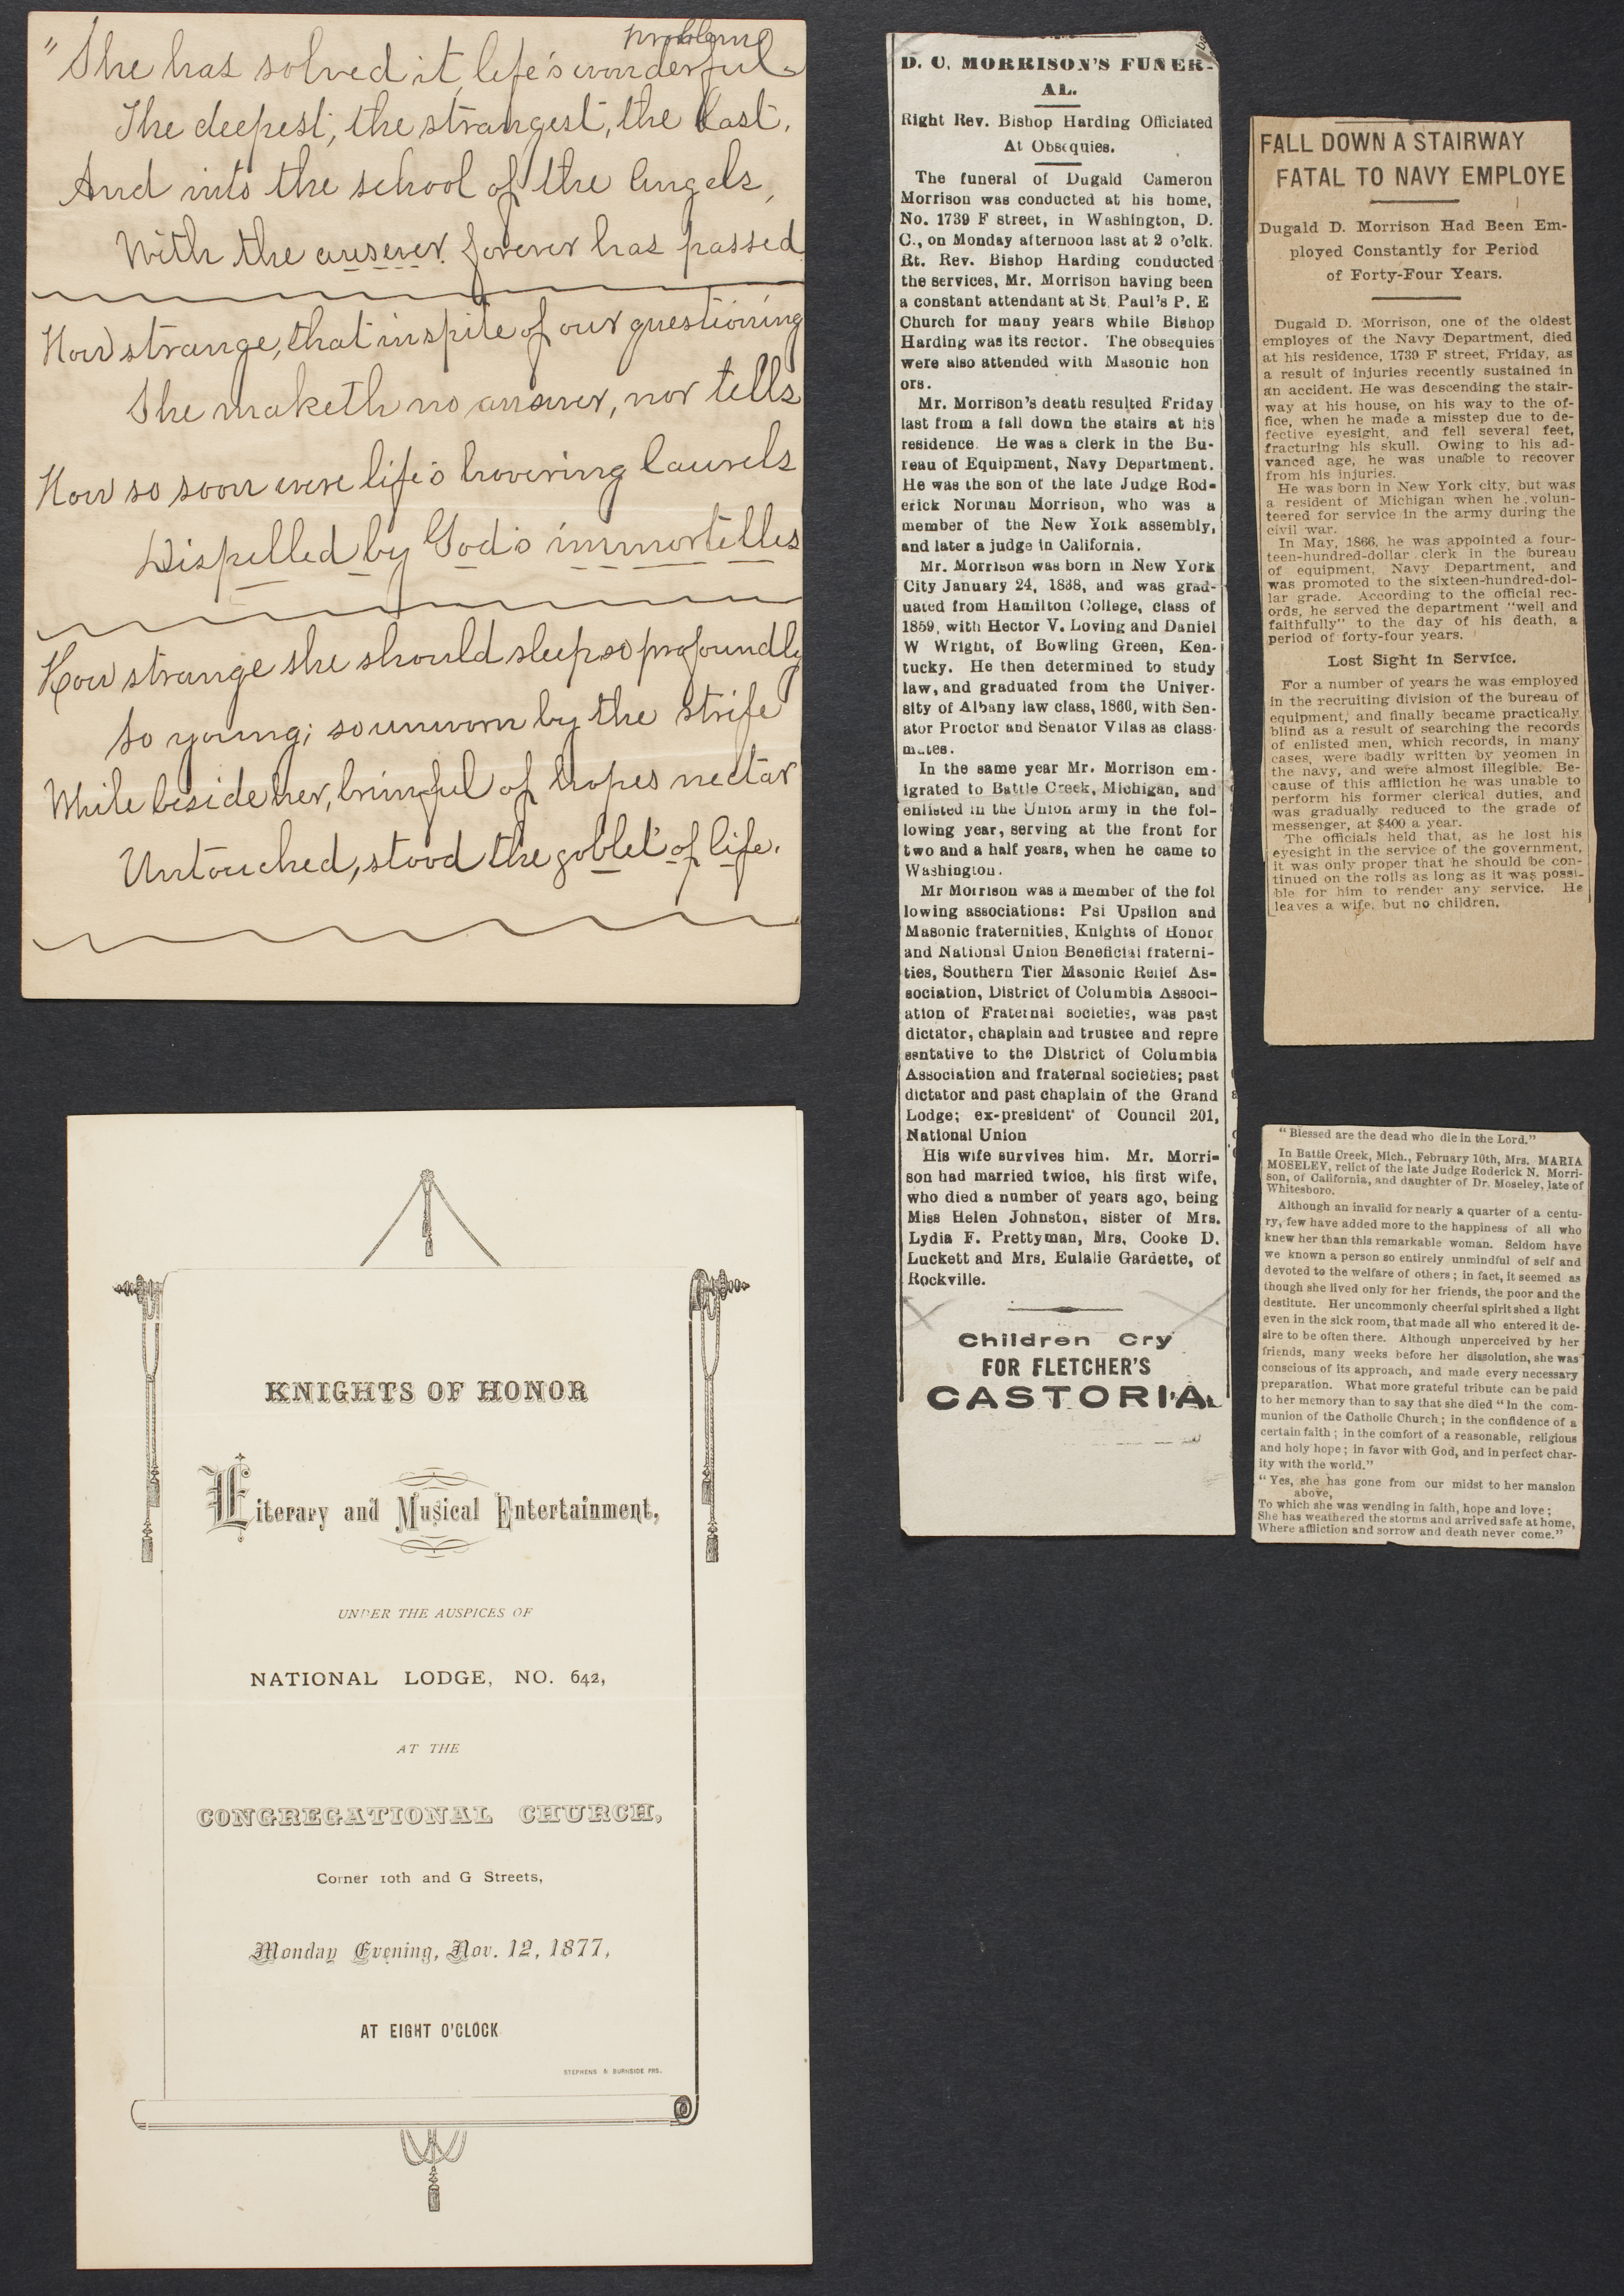 problem
" She has solved it, life's wonderful
The deepest, the strangest, the last,
And into the school of the Angels,
With the answer forever has passed
How strange, that inspite of our questioning
She maketh no answer, nor tells
How so soon were life's hovering laurels
Dispelled by God's immortelles
How strange she should sleep so profoundly
So young; so unworn by the strife
While beside her, brimful of hopes nectar
Untouched, stood the goblet of life.
KNIGHTS OF HONOR
Literary and Musical Entertainment,
UNDER THE AUSPICES OF
NATIONAL LODGE, NO. 642,
AT THE
CONGREGATIONAL CHURCH,
Corner 10th and G Streets,
Monday Evening, Nov. 12, 1877,
AT EIGHT O'CLOCK
STEPHENS & BURNSIDE PRS.
D. C. MORRISON'S FUNER-
AL.
Right Rev. Bishop Harding Officiated
At Obsequies.
The funeral of Dugald Cameron
Morrison was conducted at his home,
No. 1739 F street, in Washington, D.
C., on Monday afternoon last at 2 o'clk.
Rt. Rev. Bishop Harding conducted
the services, Mr. Morrison having been
a constant attendant at St. Paul's P. E
Church for many years while Bishop
Harding was its rector. The obsequies
were also attended with Masonic hon
ors.
Mr. Morrison's death resulted Friday
last from a fall down the stairs at his
residence. He was a clerk in the Bu-
reau of Equipment, Navy Department.
He was the son of the late Judge Rod-
erick Norman Morrison, who was a
member of the New York assembly,
and later a judge in California.
Mr. Morrison was born in New York
City January 24, 1838, and was grad-
uated from Hamilton College, class of
1859, with Hector V. Loving and Daniel
W Wright, of Bowling Green, Ken-
tucky. He then determined to study
law, and graduated from the Univer-
sity of Albany law class, 1860, with Sen-
ator Proctor and Senator Vilas as class-
mates.
In the same year Mr. Morrison em-
igrated to Battle Creek, Michigan, and
enlisted in the Union army in the fol-
lowing year, serving at the front for
two and a half years, when he came to
Washington.
Mr Morrison was a member of the fol
lowing associations: Psi Upsilon and
Masonic fraternities, Knights of Honor
and National Union Beneficial fraterni-
ties, Southern Tier Masonic Relief As-
sociation, District of Columbia Associ-
ation of Fraternal societies, was past
dictator, chaplain and trustee and repre
sentative to the District of Columbia
Association and fraternal societies; past
dictator and past chaplain of the Grand
Lodge; ex-president of Council 201,
National Union
His wife survives him. Mr. Morri-
son had married twice, his first wife,
who died a number of years ago, being
Miss Helen Johnston, sister of Mrs.
Lydia F. Prettyman, Mrs. Cooke D.
Luckett and Mrs. Eulalie Gardette, of
Rockville.
Children Cry
FOR FLETCHER'S
CASTORIA
FALL DOWN A STAIRWAY
FATAL TO NAVY EMPLOYE
Dugald D. Morrison Had Been Em-
ployed Constantly for Period
of Forty-Four Years.
Dugald D. Morrison, one of the oldest
employes of the Navy Department, died
at his residence, 1739 F street, Friday, as
a result of injuries recently sustained in
an accident. He was descending the stair-
way at his house, on his way to the of-
fice, when he made a misstep due to de-
fective eyesight, and fell several feet,
fracturing his skull. Owing to his ad-
vanced age, he was unable to recover
from his injuries.
He was born in New York city, but was
a resident of Michigan when he volun-
teered for service in the army during the
civil war.
In May, 1866, he was appointed a four-
teen-hundred-dollar clerk in the bureau
of equipment, Navy Department, and
was promoted to the sixteen-hundred-dol-
lar grade. According to the official rec-
ords, he served the department "well and
faithfully" to the day of his death, a
period of forty-four years.
Lost Sight in Service.
For a number of years he was employed
in the recruiting division of the bureau of
equipment, and finally became practically
blind as a result of searching the records
of enlisted men, which records, in many
cases, were badly written by yeomen in
the navy, and were almost illegible. Be-
cause of this affliction he was unable to
perform his former clerical duties, and
was gradually reduced to the grade of
messenger, at $400 a year.
The officials held that, as he lost his
eyesight in the service of the government,
it was only proper that he should be con-
tinued on the rolls as long as it was possi-
ble for him to render any service. He
leaves a wife, but no children.
"Blessed are the dead who die in the Lord."
In Battle Creek, Mich., February 10th, Mrs. MARIA
MOSELEY, relict of the late Judge Roderick N. Morri-
son, of California, and daughter of Dr. Moseley, late of
Whitesboro.
Although an invalid for nearly a quarter of a centu-
ry, few have added more to the happiness of all who
knew her than this remarkable woman. Seldom have
we known a person so entirely unmindful of self and
devoted to the welfare of others; in fact, it seemed as
though she lived only for her friends, the poor and the
destitute. Her uncommonly cheerful spirit shed a light
even in the sick room, that made all who entered it de-
sire to be often there. Although unperceived by her
friends, many weeks before her dissolution, she was
conscious of its approach, and made every necessary
preparation. What more grateful tribute can be paid
to her memory than to say that she died "In the com-
munion of the Catholic Church; in the confidence of a
certain faith; in the comfort of a reasonable, religious
and holy hope; in favor with God, and in perfect char-
ity with the world."
"Yes, she has gone from our midst to her mansion
above,
To which she was wending in faith, hope and love;
She has weathered the storms and arrived safe at home,
Where affliction and sorrow and death never come."